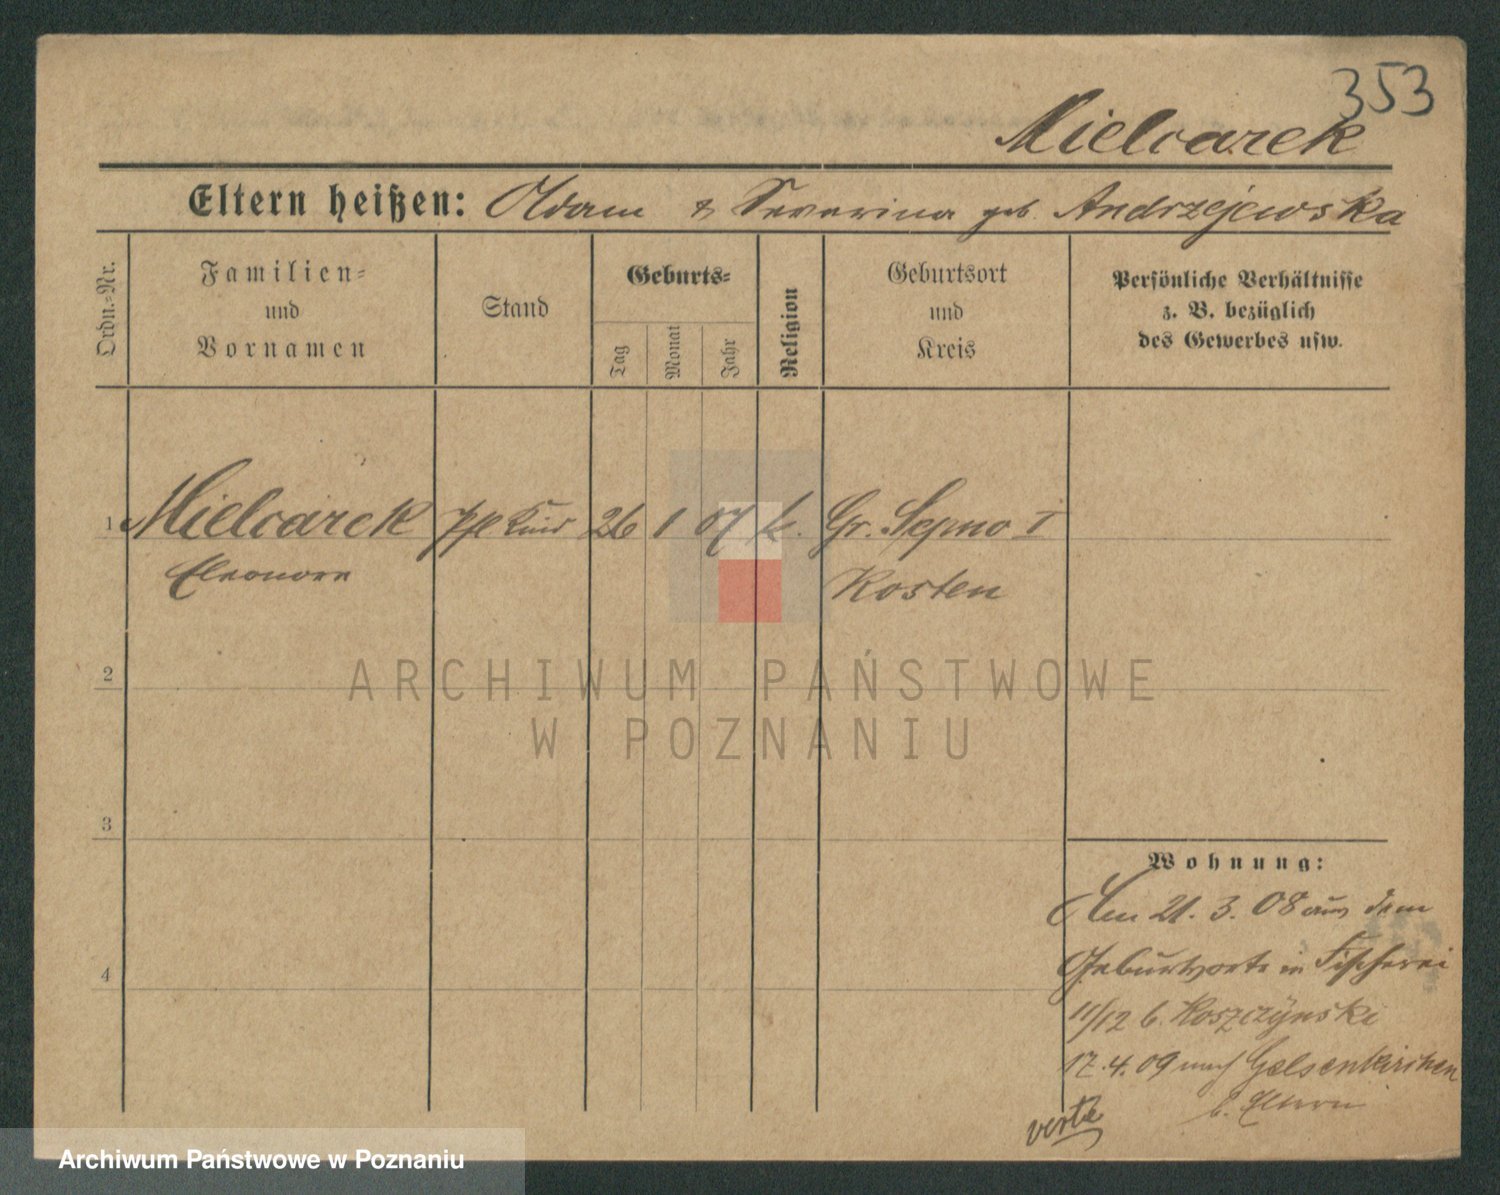 353
Mielcarek
Eltern heißen: Adam & Severina geb. Andrzejewska
Ordn.-Nr.
Familien-
und
Vornamen
Stand
Geburts-
Tag
Monat
Jahr
Religion
Geburtsort
und
Kreis
Persönliche Verhältnisse
z. B. bezüglich
des Gewerbes usw.
1 Mielcarek Pfl Kind 26 1 07 k. Gr. Sepno I
Eleonore
Kosten
2
3
4
Wohnung:
Am 21.3.08 aus dem
Geburtsorte in Fischerei
11/12 b. Koszczynski
17.4.09 nach Gelsenkirchen
b. Eltern
verte
ARCHIWUM PAŃSTWOWE
W POZNANIU
Archiwum Państwowe w Poznaniu